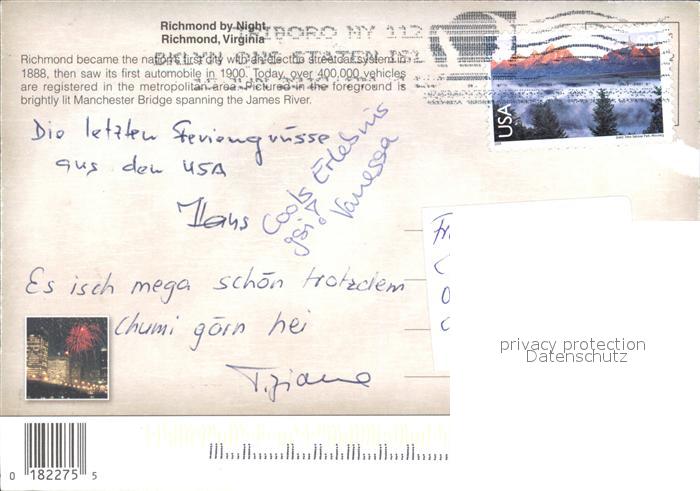 Richmond by Night
Richmond, Virginia
Richmond became the nation's first city with an electric streetcar system in
1888, then saw its first automobile in 1900. Today, over 400,000 vehicles
are registered in the metropolitan area. Pictured in the foreground is
brightly lit Manchester Bridge spanning the James River.
TRIBORO NY 112
USA
Die letzten Feriengrüsse
aus den USA
Hans
Cools Erlebnis
gsi!
Vanessa
Es isch mega schön trotzdem
chumi gärn hei
Tiziana
privacy protection
Datenschutz
0 182275 5